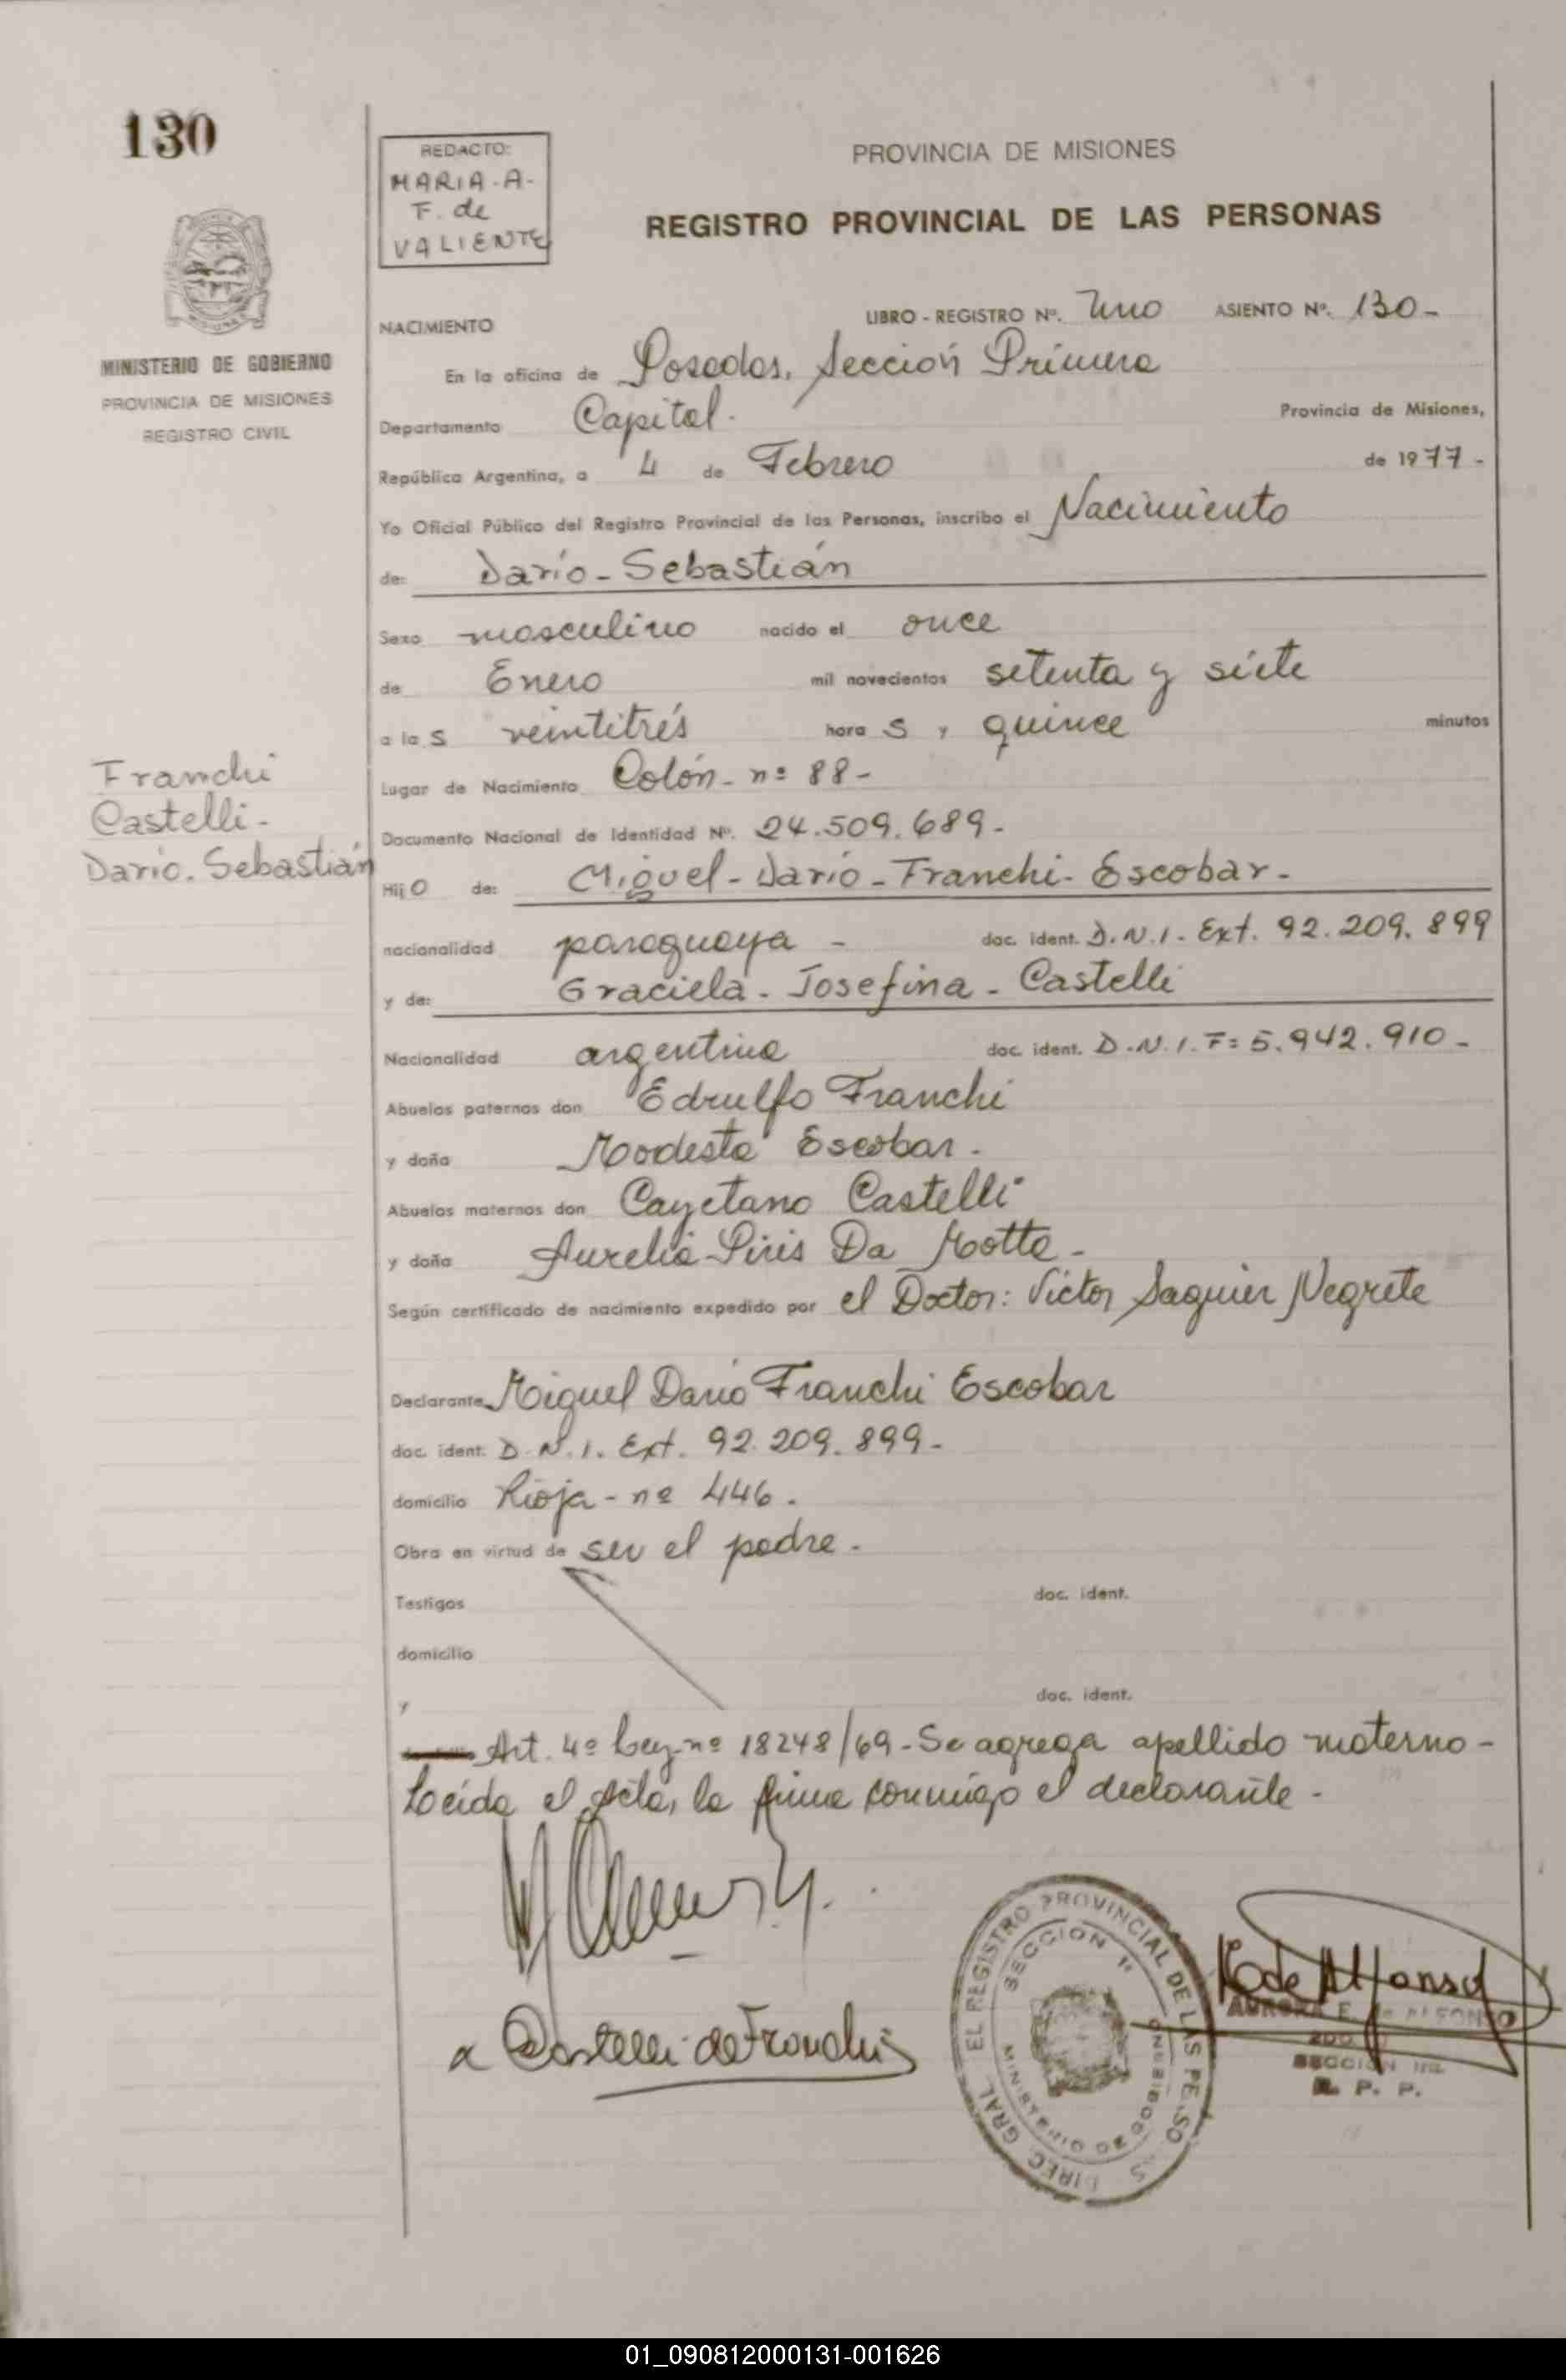 130
REDACTO:
MARIA-A-
F. de
VALIENTE
PROVINCIA DE MISIONES
REGISTRO PROVINCIAL DE LAS PERSONAS
MINISTERIO DE GOBIERNO
PROVINCIA DE MISIONES
REGISTRO CIVIL
LIBRO - REGISTRO Nº. Uno ASIENTO Nº. 130-
NACIMIENTO
En la oficina de Posadas, Sección Primera
Departamento Capital. Provincia de Misiones,
República Argentina, a 4 de Febrero de 1977-
Yo Oficial Público del Registro Provincial de las Personas, inscribo el Nacimiento
de: Darío-Sebastián
Sexo masculino nacido el once
de Enero mil novecientos setenta y siete
a la s veintitrés hora s y quince minutos
Lugar de Nacimiento Colón-nº 88-
Franchi
Castelli-
Darío. Sebastián
Documento Nacional de Identidad Nº. 24.509.689-
Hij o de: Miguel-Darío-Franchi-Escobar-
nacionalidad paraguaya - doc. ident. D.N.I. Ext. 92.209.899
y de: Graciela-Josefina-Castelli
Nacionalidad argentina doc. ident. D.N.I. F= 5.942.910-
Abuelos paternos don Edrulfo Franchi
y doña Modesta Escobar.
Abuelos maternos don Cayetano Castelli
y doña Aurelia Piris Da Motta-
Según certificado de nacimiento expedido por el Doctor: Víctor Saguier Negrete
Declarante Miguel Darío Franchi Escobar
doc. ident. D.N.I. Ext. 92.209.899-
domicilio Rioja-nº 446.
Obra en virtud de ser el padre.
Testigos doc. ident.
domicilio
y doc. ident.
Art. 4º Ley-nº 18248/69-Se agrega apellido materno-
Leída el acta, la firma conmigo el declarante-
a Castelli de Franchi
DIREC. GRAL. EL REGISTRO PROVINCIAL DE LAS PERSONAS
SECCION 1ª
MINISTERIO DE GOBIERNO
R de Alfonso
AURORA E. de ALFONSO
SECCION 1ra.
R. P. P.
01_090812000131-001626